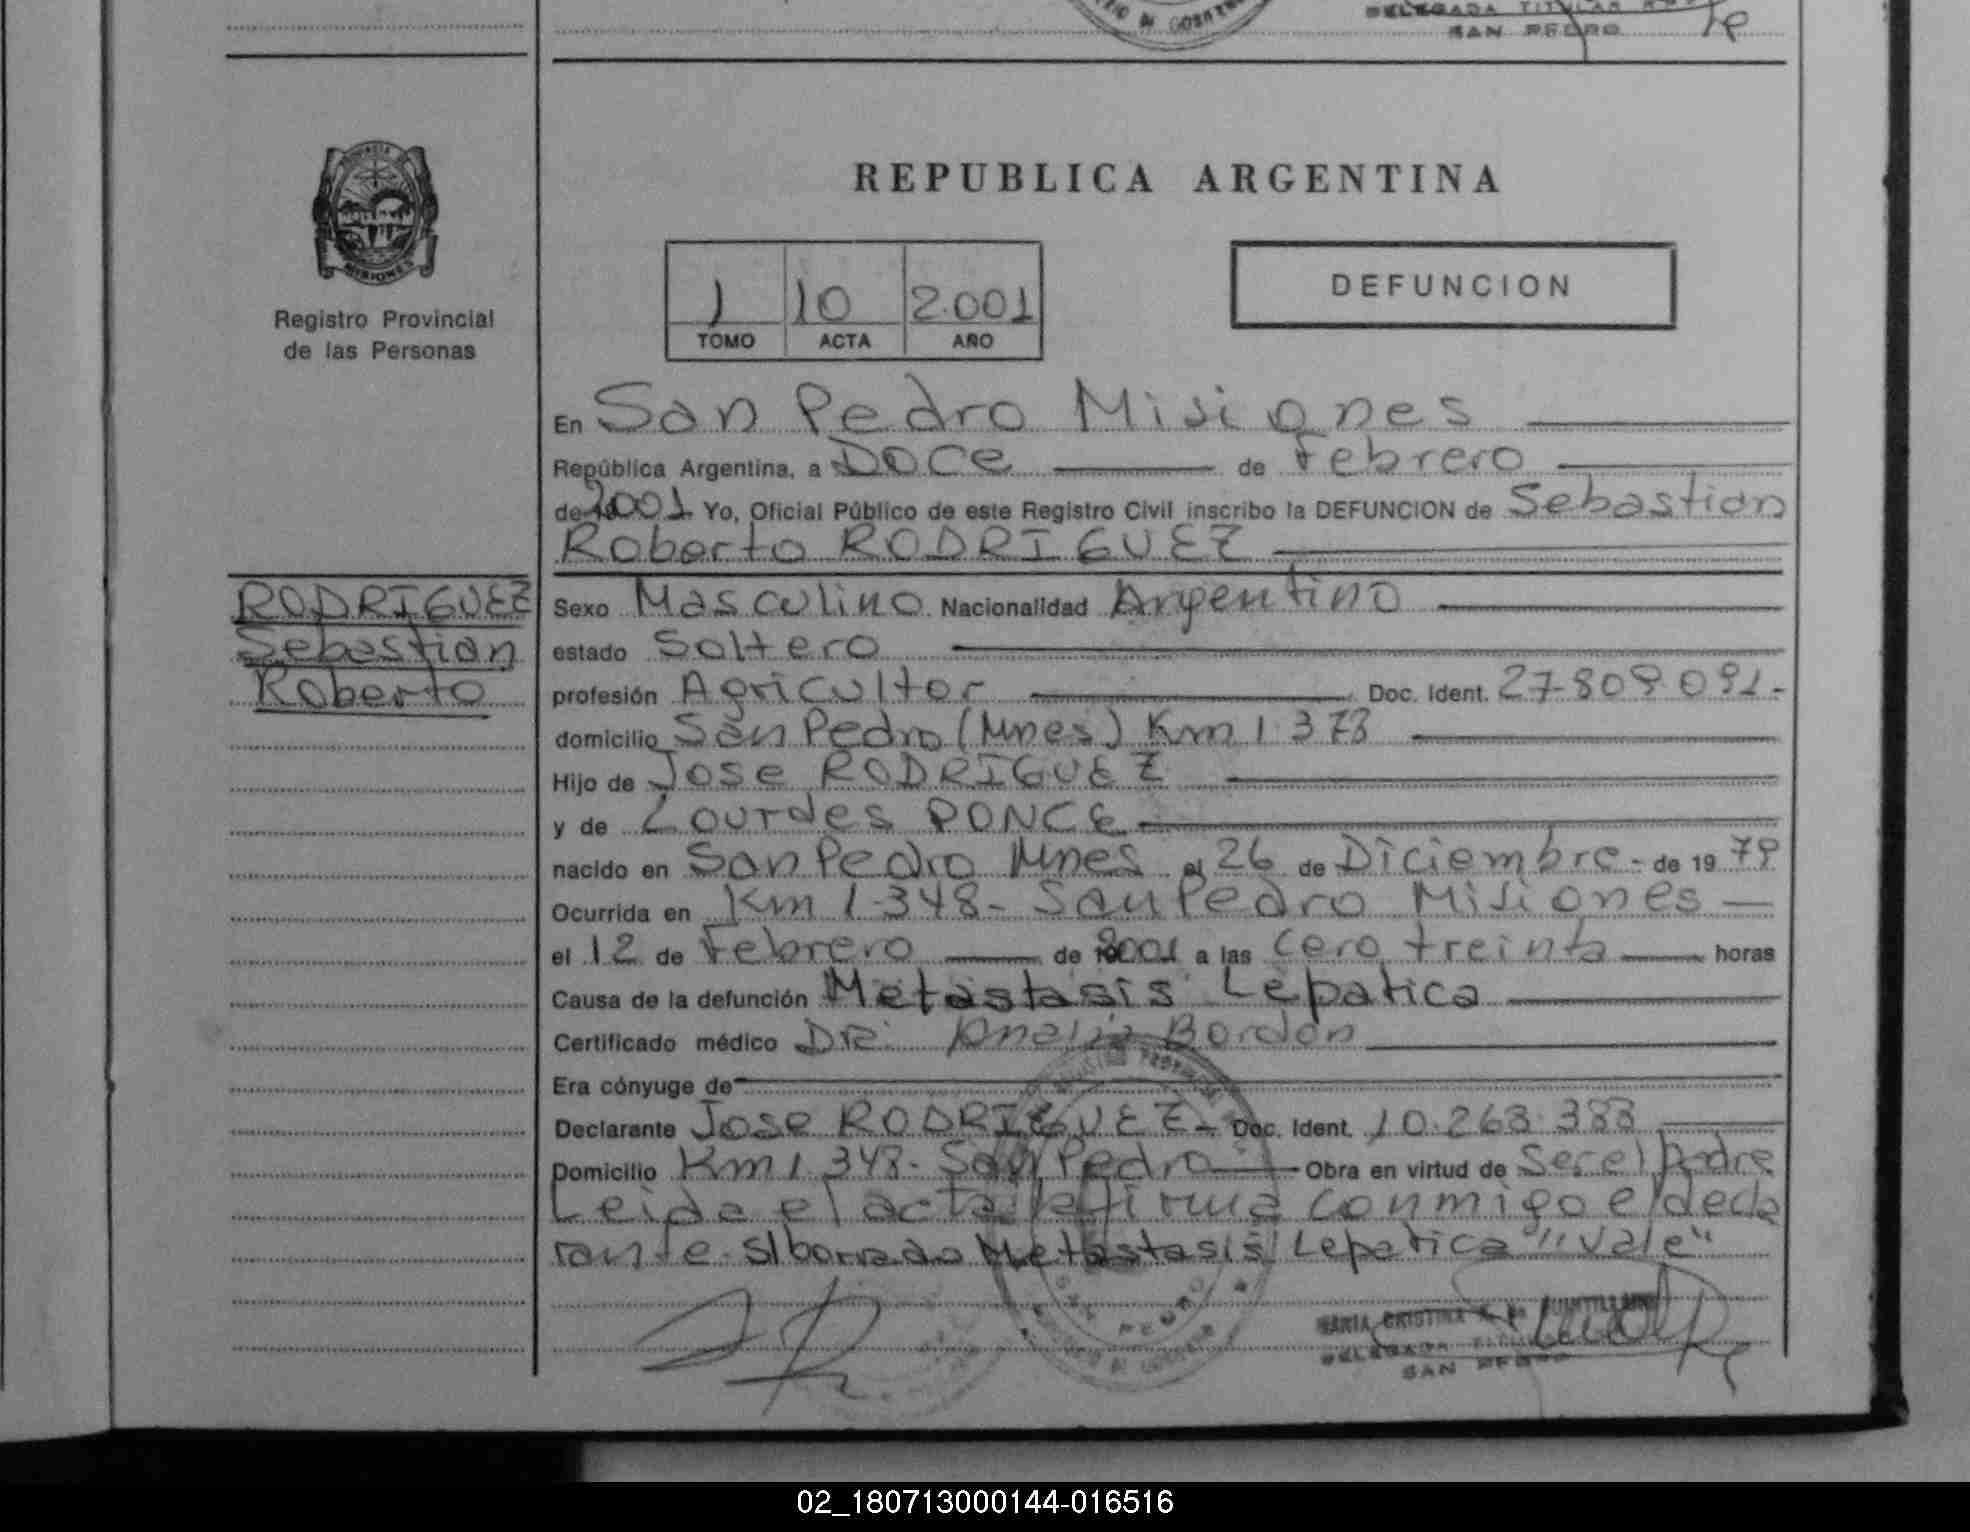 DELEGADA TITULAR
SAN PEDRO
REPUBLICA ARGENTINA
MISIONES
Registro Provincial
de las Personas
1 10 2.001
TOMO ACTA AÑO
DEFUNCION
En San Pedro Misiones
República Argentina, a Doce de Febrero
de 2001 Yo, Oficial Público de este Registro Civil inscribo la DEFUNCION de Sebastian
Roberto RODRIGUEZ
RODRIGUEZ
Sebastian
Roberto
Sexo Masculino Nacionalidad Argentino
estado Soltero
profesión Agricultor Doc. Ident. 27-809.091-
domicilio San Pedro (Mnes) Km 1.373
Hijo de Jose RODRIGUEZ
y de Lourdes PONCE
nacido en San Pedro Mnes el 26 de Diciembre - de 19 79
Ocurrida en Km 1.348- San Pedro Misiones
el 12 de Febrero de 2001 a las Cero treinta horas
Causa de la defunción Metastasis Lepatica
Certificado médico Dra. Analia Bordon
Era cónyuge de
Declarante Jose RODRIGUEZ- Doc. Ident. 10.263.383
Domicilio Km 1.348- San Pedro Obra en virtud de Ser el Padre
Leida el acta la firma conmigo el decla
rante. S/borrado Metastasis Lepatica "Vale"
SAN PEDRO
MARIA CRISTINA
DELEGADA TITULAR
SAN PEDRO
02_180713000144-016516